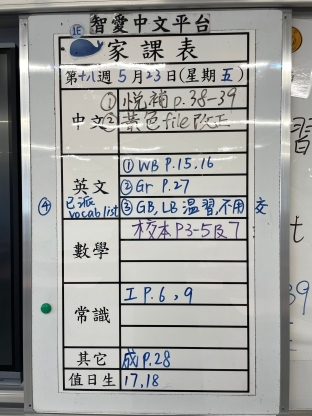 1E
智愛中文平台
家課表
第十八週5月23日(星期五)
中文
①悅補p.38-39
②黃色file改正
英文
①WB P.15.16
②Gr P.27
③GB, LB 溫習,不用交
④已派 vocab list
數學
校本P3-5及7
常識
工P.6,9
其它
成P.28
值日生
17,18
習
t
39